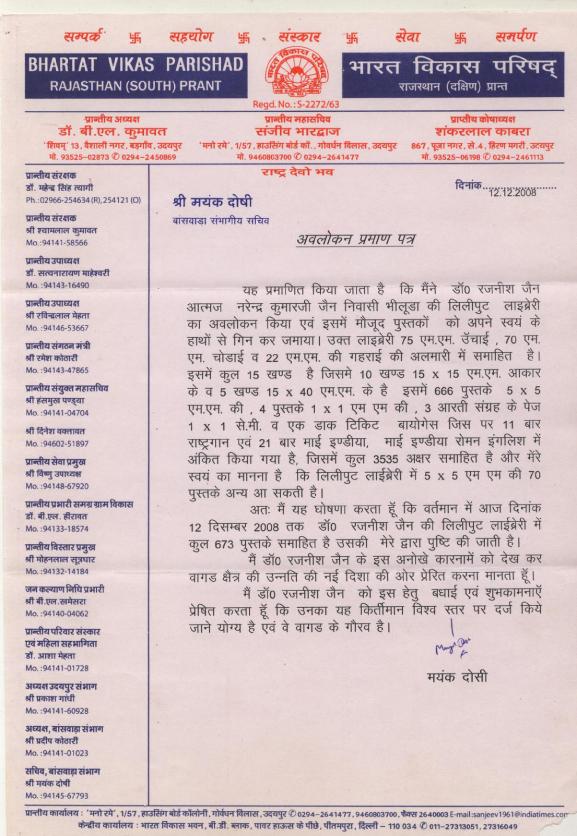 सम्पर्क 卐 सहयोग 卐 संस्कार 卐 सेवा 卐 समर्पण
BHARTAT VIKAS PARISHAD
RAJASTHAN (SOUTH) PRANT
भारत विकास परिषद्
Regd. No.: S-2272/63
भारत विकास परिषद्
राजस्थान (दक्षिण) प्रान्त
प्रान्तीय अध्यक्ष
डॉ. बी.एल. कुमावत
'शिवम्' 13, वैशाली नगर, बड़गाँव, उदयपुर
मो. 93525-02873 ✆ 0294-2450869
प्रान्तीय महासचिव
संजीव भारद्वाज
'मनो रमे', 1/57, हाउसिंग बोर्ड कॉ., गोवर्धन विलास, उदयपुर
मो. 9460803700 ✆ 0294-2641477
प्राप्तीय कोषाध्यक्ष
शंकरलाल काबरा
867, पूजा नगर, से.4, हिरण मगरी, उदयपुर
मो. 93525-06198 ✆ 0294-2461113
राष्ट्र देवो भव
प्रान्तीय संरक्षक
डॉ. महेन्द्र सिंह त्यागी
Ph.:02966-254634 (R),254121 (O)
प्रान्तीय संरक्षक
श्री श्यामलाल कुमावत
Mo.:94141-58566
प्रान्तीय उपाध्यक्ष
डॉ. सत्यनारायण माहेश्वरी
Mo.:94143-16490
प्रान्तीय उपाध्यक्ष
श्री रविन्द्रलाल मेहता
Mo.:94146-53667
प्रान्तीय संगठन मंत्री
श्री रमेश कोठारी
Mo.:94143-47865
प्रान्तीय संयुक्त महासचिव
श्री हंसमुख पण्ड्या
Mo.:94141-04704
श्री दिनेश वक्तावत
Mo.:94602-51897
प्रान्तीय सेवा प्रमुख
श्री विष्णु उपाध्यक्ष
Mo.:94148-67920
प्रान्तीय प्रभारी समग्र ग्राम विकास
डॉ. बी.एल. हीरावत
Mo.:94133-18574
प्रान्तीय विस्तार प्रमुख
श्री मोहनलाल सूत्रधार
Mo.:94132-14184
जन कल्याण निधि प्रभारी
श्री बी.एल.खमेसरा
Mo.:94140-04062
प्रान्तीय परिवार संस्कार
एवं महिला सहभागिता
डॉ. आशा मेहता
Mo.:94141-01728
अध्यक्ष उदयपुर संभाग
श्री प्रकाश गांधी
Mo.:94141-60928
अध्यक्ष, बांसवाड़ा संभाग
श्री प्रदीप कोठारी
Mo.:94141-01023
सचिव, बांसवाड़ा संभाग
श्री मयंक दोषी
Mo.:94145-67793
दिनांक......................
12.12.2008
श्री मयंक दोषी
बांसवाडा संभागीय सचिव
अवलोकन प्रमाण पत्र
यह प्रमाणित किया जाता है कि मैंने डॉ0 रजनीश जैन
आत्मज नरेन्द्र कुमारजी जैन निवासी भीलूडा की लिलीपुट लाइब्रेरी
का अवलोकन किया एवं इसमें मौजूद पुस्तकों को अपने स्वयं के
हाथों से गिन कर जमाया। उक्त लाइब्रेरी 75 एम.एम. उँचाई , 70 एम.
एम. चोडाई व 22 एम.एम. की गहराई की अलमारी में समाहित है।
इसमें कुल 15 खण्ड है जिसमे 10 खण्ड 15 x 15 एम.एम. आकार
के व 5 खण्ड 15 x 40 एम.एम. के है इसमें 666 पुस्तके 5 x 5
एम.एम. की , 4 पुस्तके 1 x 1 एम एम की , 3 आरती संग्रह के पेज
1 x 1 से.मी. व एक डाक टिकिट बायोगेस जिस पर 11 बार
राष्ट्रगान एवं 21 बार माई इण्डीया, माई इण्डीया रोमन इंगलिश में
अंकित किया गया है, जिसमें कुल 3535 अक्षर समाहित है और मेरे
स्वयं का मानना है कि लिलीपुट लाईब्रेरी में 5 x 5 एम एम की 70
पुस्तके अन्य आ सकती है।
अतः मैं यह घोषणा करता हूँ कि वर्तमान में आज दिनांक
12 दिसम्बर 2008 तक डॉ0 रजनीश जैन की लिलीपुट लाईब्रेरी में
कुल 673 पुस्तके समाहित है उसकी मेरे द्वारा पुष्टि की जाती है।
मैं डॉ0 रजनीश जैन के इस अनोखे कारनामें को देख कर
वागड क्षैत्र की उन्नति की नई दिशा की ओर प्रेरित करना मानता हूँ।
मैं डॉ0 रजनीश जैन को इस हेतु बधाई एवं शुभकामनाएँ
प्रेषित करता हूँ कि उनका यह किर्तीमान विश्व स्तर पर दर्ज किये
जाने योग्य है एवं वे वागड के गौरव है।
मयंक दोसी
प्रान्तीय कार्यालय : 'मनो रमे', 1/57, हाउसिंग बोर्ड कॉलोनी, गोर्वधन विलास, उदयपुर ✆ 0294-2641477, 9460803700, फैक्स 2640003 E-mail:sanjeev1961@indiatimes.com
केन्द्रीय कार्यालय : भारत विकास भवन, बी.डी. ब्लाक, पावर हाऊस के पीछे, पीतमपुरा, दिल्ली – 110 034 ✆ 011-27313051, 27316049